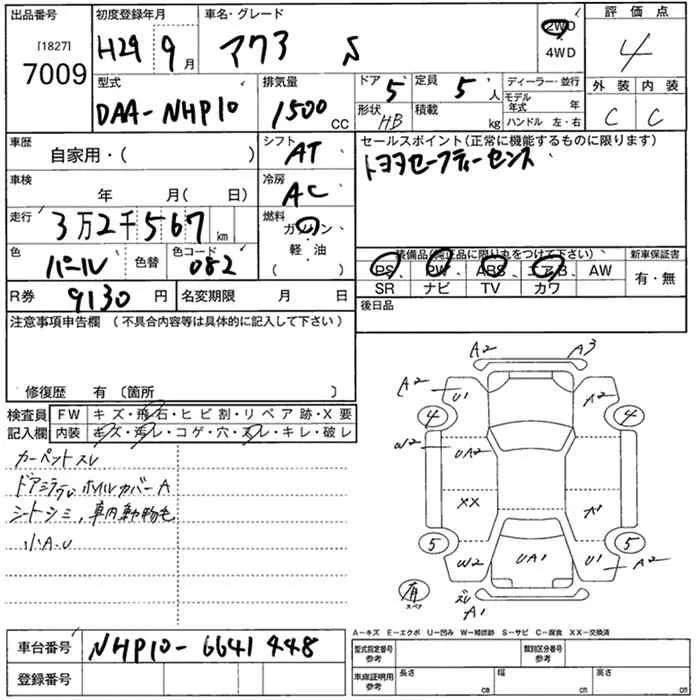 出品番号 初度登録年月 車名・グレード 2WD 評価点
[1827] 7009 H29 9月 アクア S 4WD 4
型式 排気量 ドア 5 定員 5人 ディーラー・並行 外装 内装
DAA-NHP10 1500CC 形状 HB 積載 kg モデル年式 年 C C
ハンドル 左・右
車歴 シフト セールスポイント(正常に機能するものに限ります)
自家用・( ) AT トヨタセーフティーセンス
車検 年 月( 日) 冷房 AC
走行 3万2千567km 燃料 ガソリン・軽・油 ( )
色 パール 色替 色コード 082
装備品(純正品に限り丸をつけて下さい) 新車保証書
PS PW ABS エアB AW 有・無
SR ナビ TV カワ
R券 9130円 名変期限 月 日 後日品
注意事項申告欄(不具合内容等は具体的に記入して下さい)
修復歴 有〔箇所 〕
検査員 FW キズ・飛石・ヒビ割・リペア跡・X要
記入欄 内装 キズ・汚レ・コゲ・穴・スレ・キレ・破レ
カーペットスレ
ホイルカバーA
シートシミ,車内動物毛
小A-U
A2 A3
A2 U1 A2
4 4
W2 UA2
XX A1
5 5
W2 UA1 U1 A2
有 スペア
スレ A1
A-キズ E-エクボ U-凹み W-補修跡 S-サビ C-腐食 XX-交換済
車台番号 NHP10-6641448
登録番号
型式指定番号 参考 類別区分番号 参考
車庫証明用 参考 長さ cm 幅 cm 高さ cm